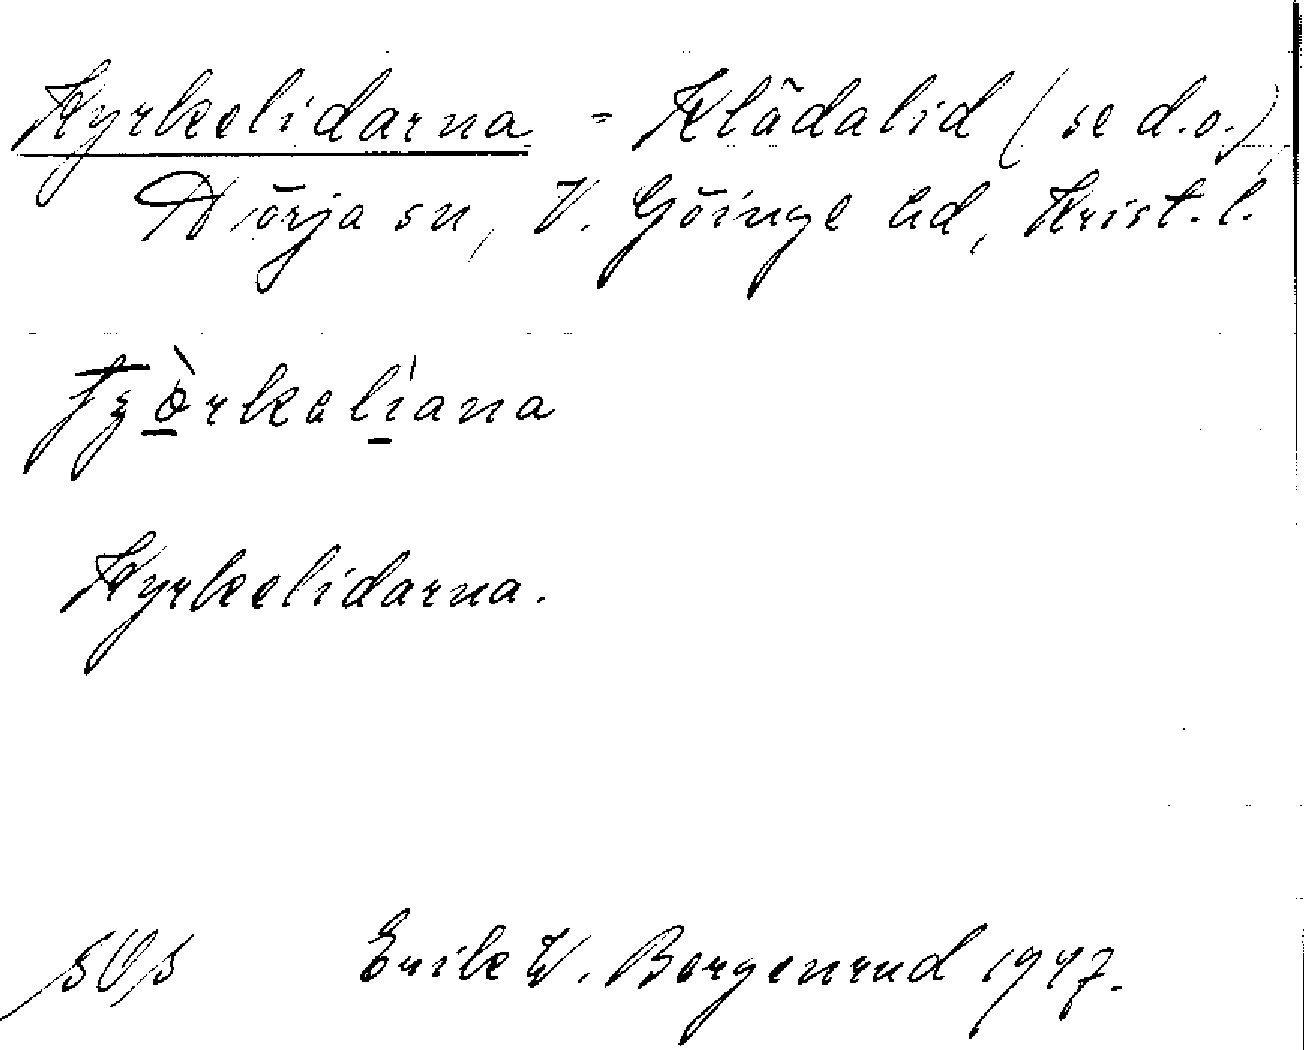 Kyrkelidarna = Klädalid (se d.o.)
Nörja sn, V. Göinge hd, Krist. l.
Kyrkelidarna.
Erik W. Borgenrud 1947.